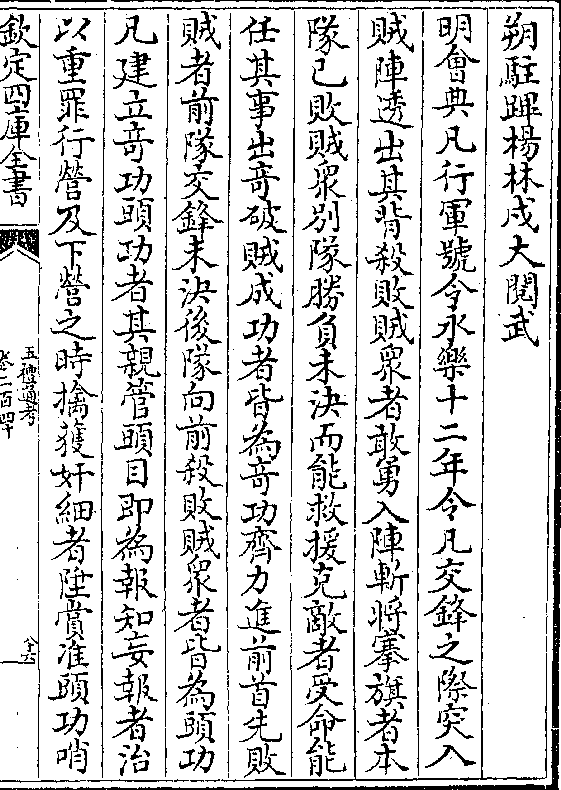 朔駐蹕楊林戍大閱武
明會典凡行軍號令永樂十二年令凡交鋒之際突入
賊陣透出其背殺敗賊衆者敢勇入陣斬將搴旗者本
隊已敗賊衆别隊勝負未決而能救援克敵者受命能
任其事出奇破賊成功者皆為奇功齊力進前首先敗
賊者前隊交鋒未決後隊向前殺敗賊衆者皆為頭功
凡建立奇功頭功者其親管頭目即為報知妄報者治
以重罪行營及下營之時擒獲奸細者陞賞准頭功哨
欽定四庫全書
五禮通考
卷二百四十